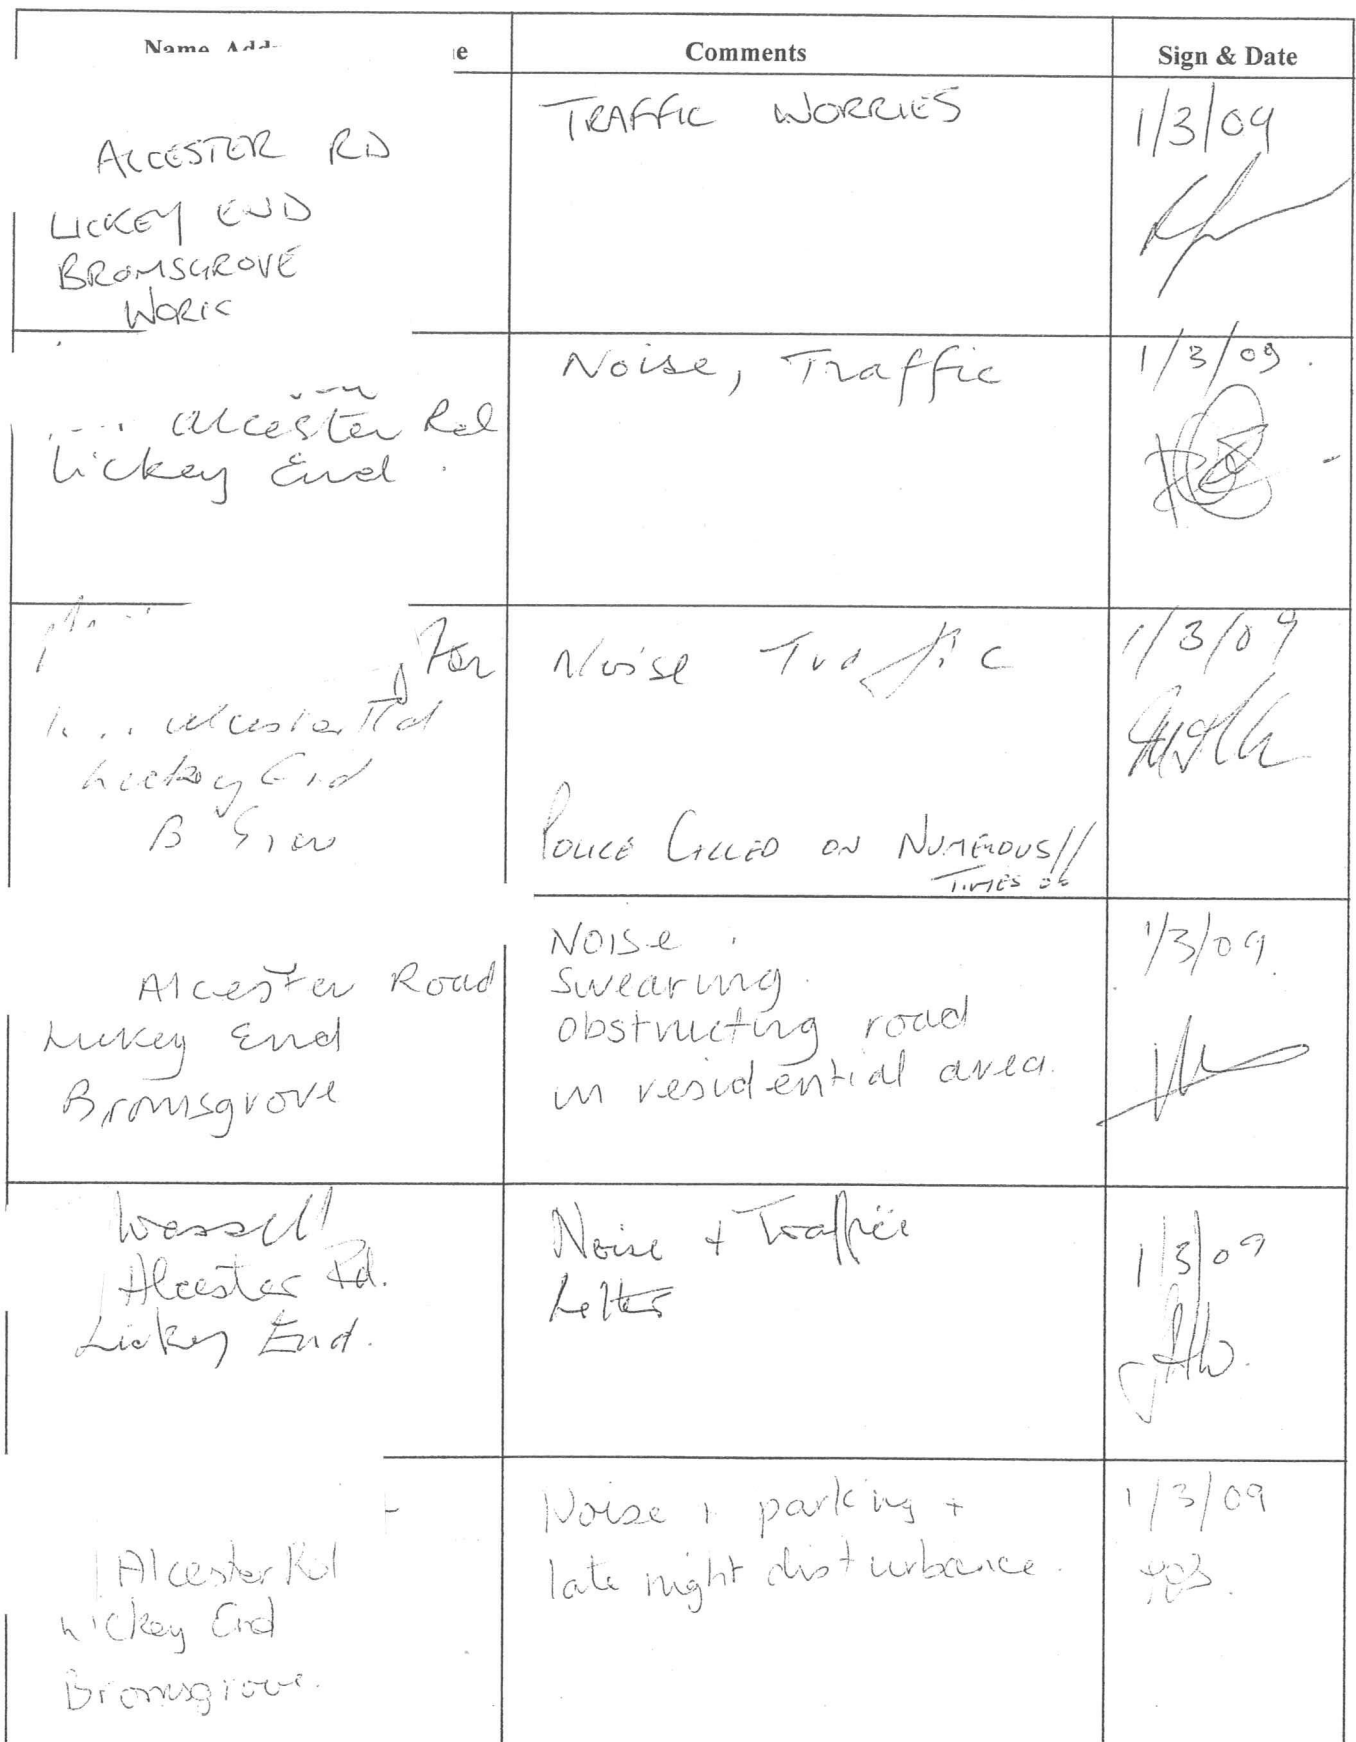 Comments
Sign & Date
ALCESTER RD
LICKEY END
BROMSGROVE
WORCS
TRAFFIC WORRIES
1/3/09
Alcester Rd
Lickey End.
Noise, Traffic
1/3/09.
Alcester Rd
Lickey End
B Grove
Noise Traffic
POLICE CALLED ON NUMEROUS!!
TIMES
1/3/09
Alcester Road
Lickey End
Bromsgrove
Noise.
Swearing.
obstructing road
in residential area.
1/3/09.
Alcester Rd.
Lickey End.
Noise + Traffic
Letter
1/3/09
Alcester Rd
Lickey End
Bromsgrove.
Noise, parking +
late night disturbance.
1/3/09